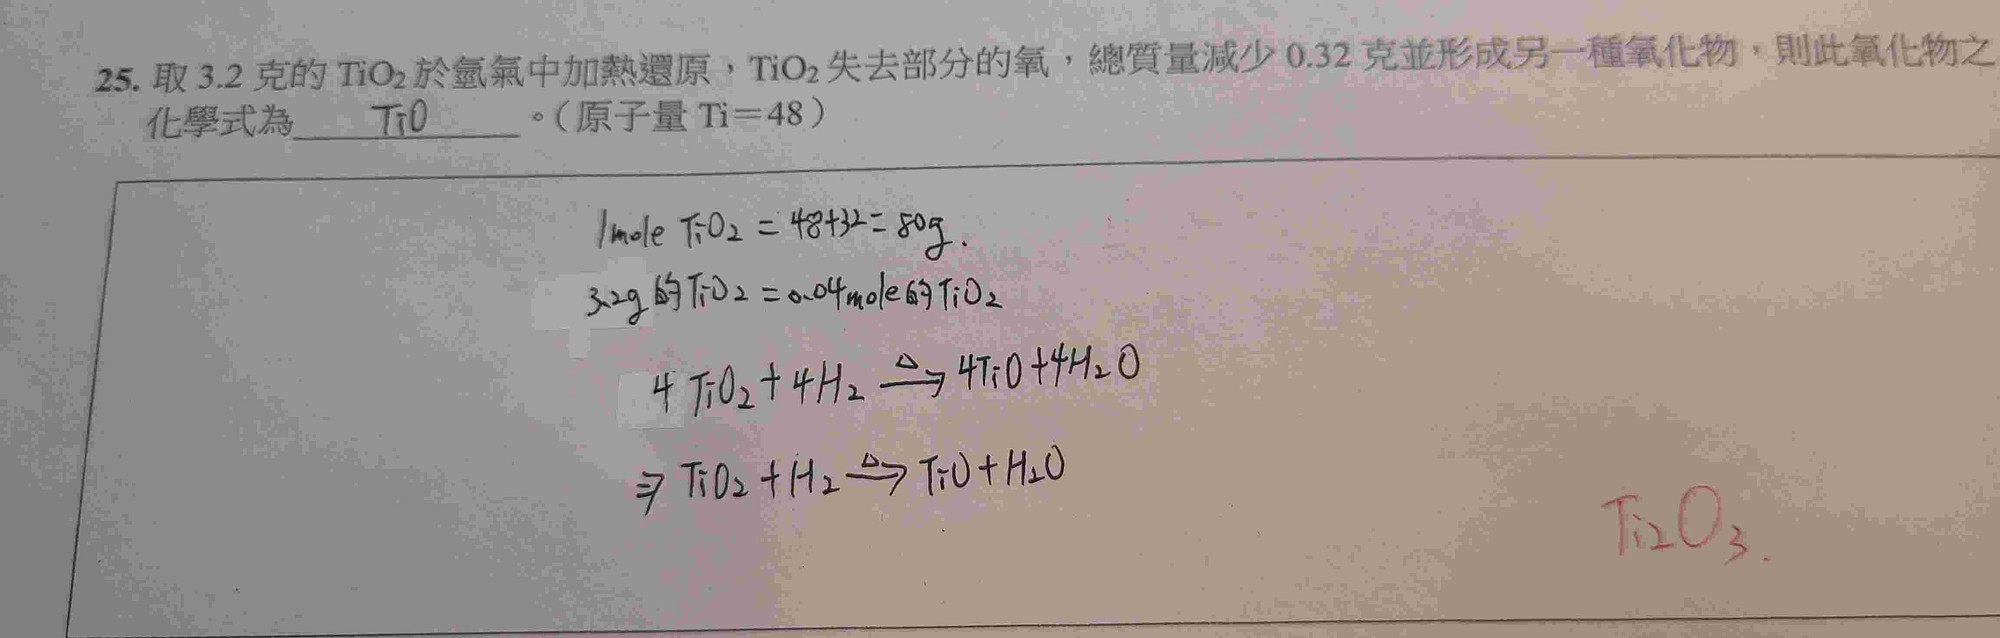 25. 取 3.2 克的 TiO₂ 於氫氣中加熱還原，TiO₂ 失去部分的氧，總質量減少 0.32 克並形成另一種氧化物，則此氧化物之
化學式為 TiO 。（原子量 Ti＝48）
1mole TiO₂ = 48+32 = 80g.
3.2g的TiO₂ = 0.04mole的TiO₂
4 TiO₂ + 4H₂ △→ 4TiO + 4H₂O
⇒ TiO₂ + H₂ △→ TiO + H₂O
Ti₂O₃.